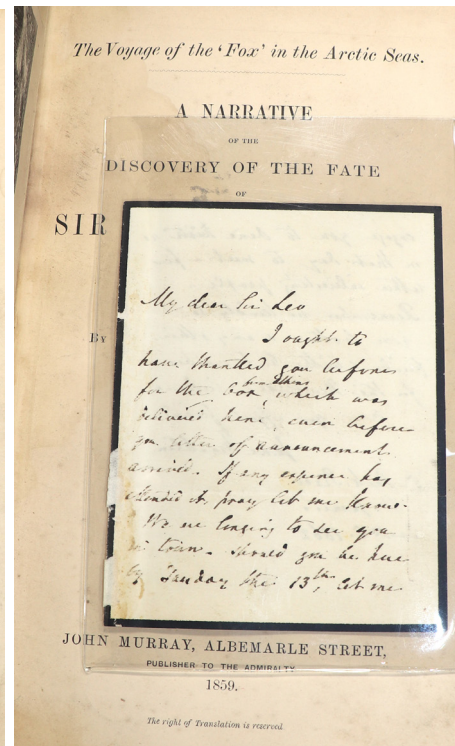 The Voyage of the 'Fox' in the Arctic Seas.
A NARRATIVE
OF THE
DISCOVERY OF THE FATE
OF
SIR
By
My dear Sir Leo
I ought to
have thanked you before
for the box from Athens, which was
delivered here, even before
your letter of announcement
arrived. If any expense has
attended it, pray let me know.
We are longing to see you
in town. Should you be here
by Sunday the 13th, let me
JOHN MURRAY, ALBEMARLE STREET,
PUBLISHER TO THE ADMIRALTY
1859.
The right of Translation is reserved.